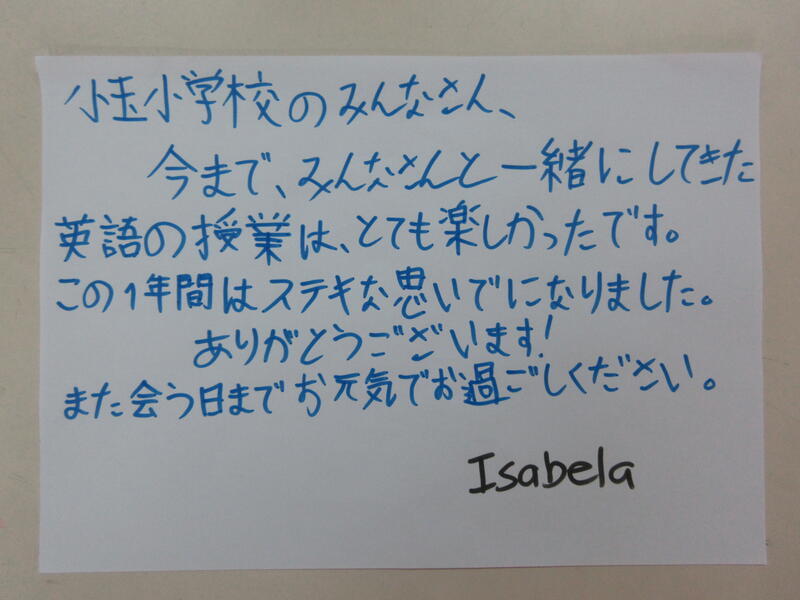 小玉小学校のみんなさん、
今まで、みんなさんと一緒にしてきた
英語の授業は、とても楽しかったです。
この1年間はステキな思いでになりました。
ありがとうございます!
また会う日までお元気でお過ごしください。
Isabela